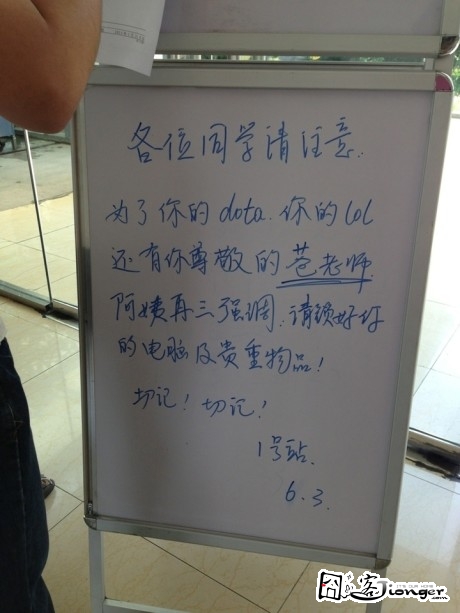 各位同学请注意.
为了你的dota.你的lol
还有你尊敬的苍老师.
阿姨再三强调.请锁好你
的电脑及贵重物品!
切记!切记!
1号站.
6.3.
囧客
IT'S OUR HOME
Jionger.com